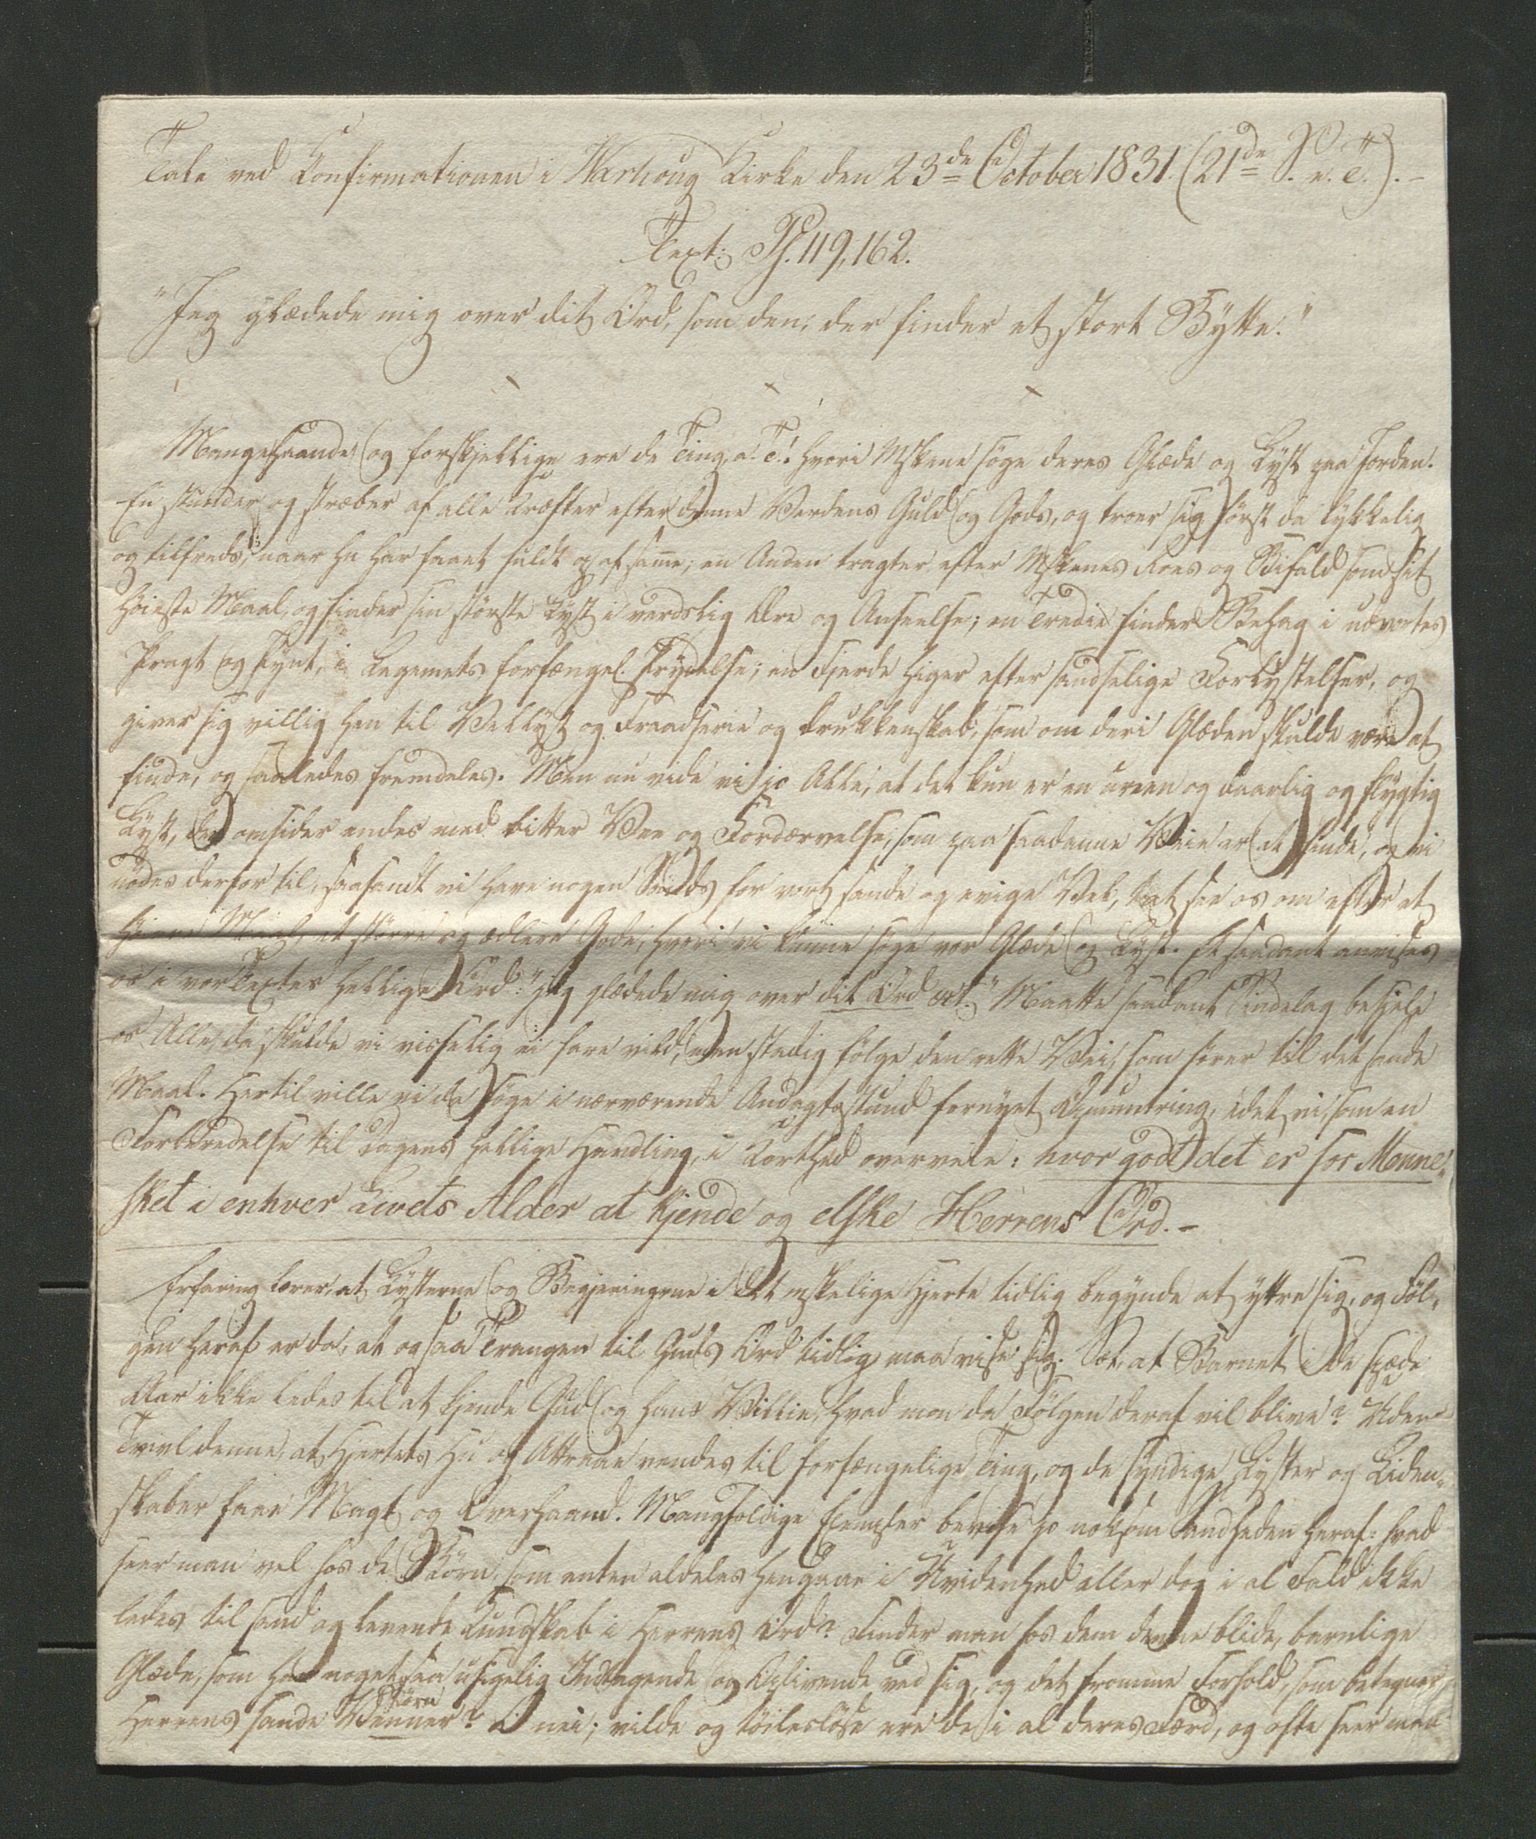 Tale ved Konfirmationen i Warhoug Kirke den 23de October 1831. (21de S. e. T.). –
Text: Ps. 119, 162.
"Jeg glædede mig over dit Ord, som den, der finder et stort Bytte."
Mangehaande og forskjellige ere de Ting, a. T.! hvori Mskene søge deres Glæde og Lyst paa Jorden.
En stunder og stræber af alle Kræfter efter denne Verdens Guld og Gods, og troer sig først da lykkelig
og tilfreds, naar hn har faaet fuldt op af samme; en Anden tragter efter Mskenes Roes og Bifald som sit
høieste Maal, og finder sin største Lyst i verdslig Ære og Anseelse; en Tredie finder Behag i udvortes
Pragt og Pynt, i Legemets forfængel. Prydelse; en Fjerde higer efter sandselige Forlystelser, og
giver sig villig hen til Vellyst og Fraadserie og Drukkenskab, som om deri Glæden skulde være at
finde, og saaledes fremdeles. Men nu vide vi jo Alle, at det kun er en ureen og daarlig og flygtig
Lyst, der omsider endes med bitter Vee og Fordærvelse, som paa saadanne Veie er at finde, og vi
nødes derfor til, saasandt vi have nogen Sands for vort sande og evige Vel, at see os om efter et
større og ædlere Gode, hvori vi kunne søge vor Glæde og Lyst. Et saadant anvises
os i vor Textes hellige Ord: "Jeg glædede mig over dit Ord etc." Maatte saadant Sindelag besjele
os Alle, da skulde vi visselig ei fare vild, men stadig følge den rette Vei, som fører til det sande
Maal. Hertil ville vi da søge i nærværende Andagtsstund fornyet Opmuntring, idet vi, som en
Forberedelse til Dagens hellige Handling, i Korthed overveie: hvor godt det er for Menne-
sket i enhver Livets Alder at kjende og elske Herrens Ord. –
Erfaring lærer, at Lysterne og Begjeringerne i det mskelige Hjerte tidlig begynde at yttre sig, og Føl-
gen heraf er da, at ogsaa Trangen til Guds Ord tidlig maa vise sig. Sæt, at Barnet i de spæde
Aar ikke ledes til at kjende Gud og hans Villie, hvad mon da Følgen deraf vil blive? Uden
Tvivl denne, at Hjertets Hu og Attraae vendes til forfængelige Ting, og de syndige Lyster og Liden-
skaber faae Magt og Overhaand. Mangfoldige Exempler bevise jo noksom Sandheden heraf: hvad
seer man vel hos de Børn, som enten aldeles hengaae i Uvidenhed eller dog i al Fald ikke
ledes til sand og levende Kundskab i Herrens Ord? Finder man hos dem denne blide, barnlige
Glæde, som har noget saa usigelig Indtagende og Oplivende ved sig, og det fromme Forhold, som betegner
Herrens sande Børn Venner? O nei; vilde og tøilesløse ere de i al deres Færd, og ofte seer man